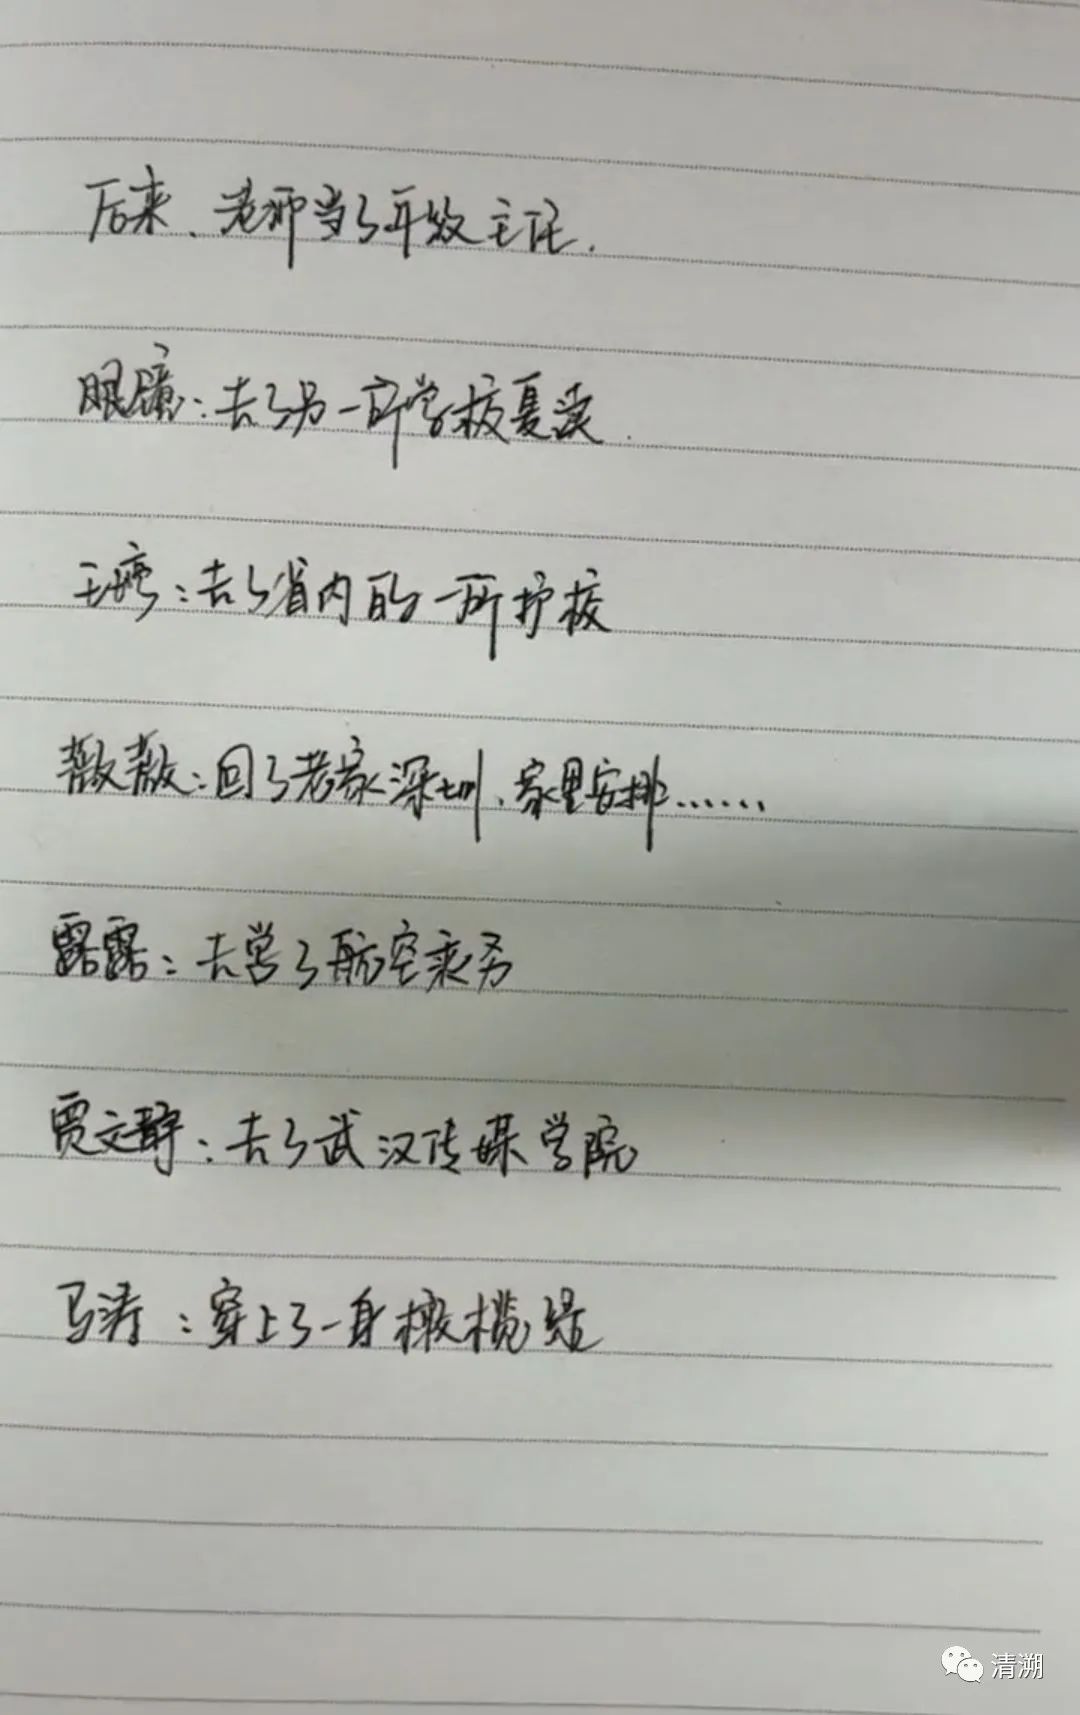 后来、老师当了年级主任.
眼镜：去了另一所学校复读.
王婷：去了省内的一所护校
薇薇：回了老家深圳、家里安排……
露露：去当了航空乘务
贾文静：去了武汉传媒学院
马涛：穿上了一身橄榄绿
清溯